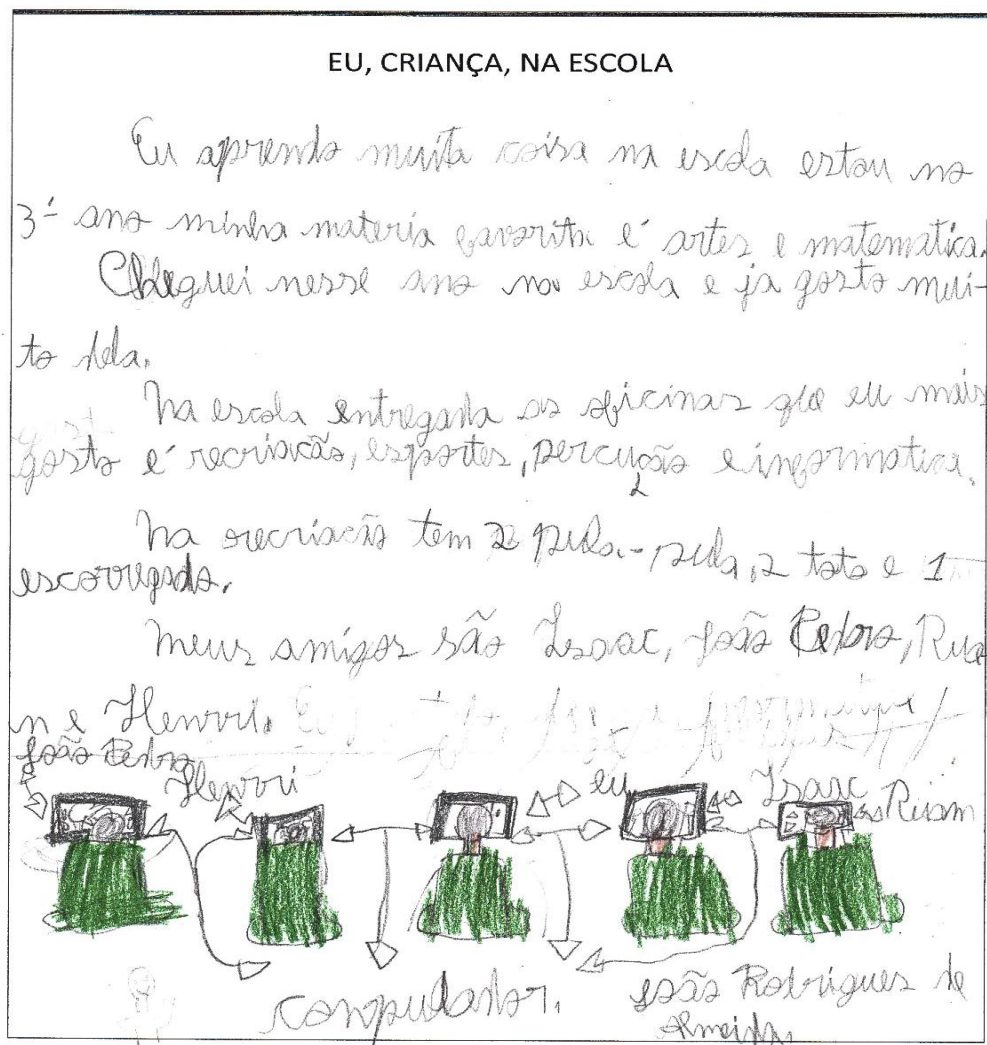 EU, CRIANÇA, NA ESCOLA
Eu aprendo muita coisa na escola estou no
3º ano minha materia favorita é artes e matematica.
Cheguei nesse ano na escola e ja gosto mui-
to dela.
Na escola entregada as oficinas que eu mais
gosto é recriacão, esportes, percução e informatica.
Na recriacão tem 2 pula-pula, 2 toto e 1
escorregado.
Meus amigos são Isaac, João Pedro, Rua
n e Henrri.
João Pedro
Henrri
eu
Isaac
Ruam
compudador.
João Rodrigues de
Almeida